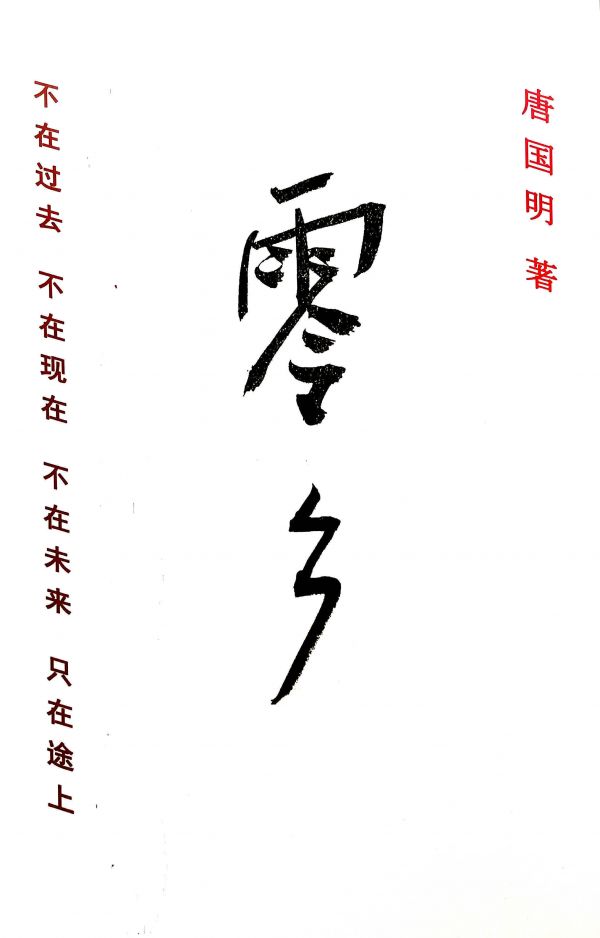 唐国明 著
零乡
不在过去 不在现在 不在未来 只在途上